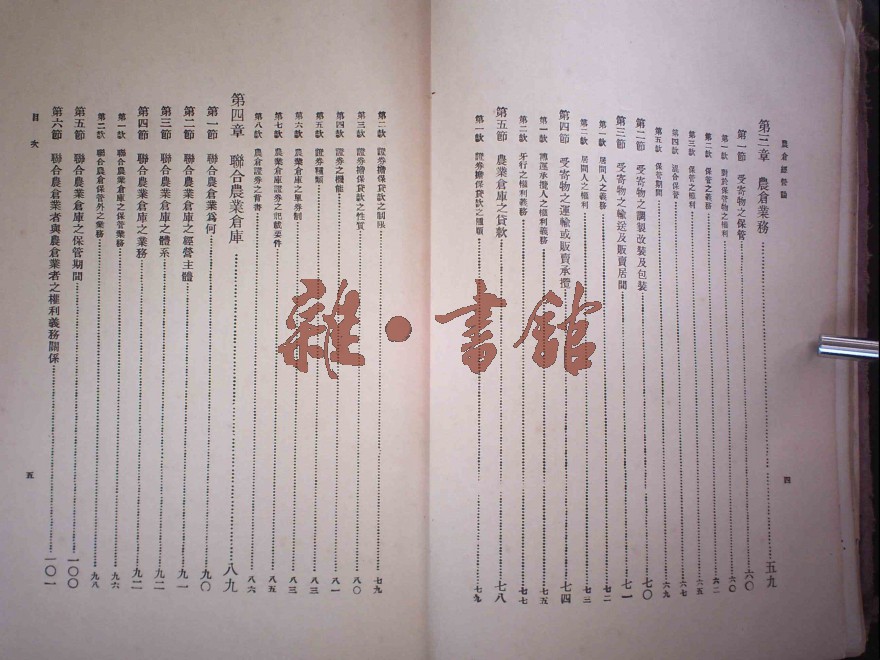 農倉經營論
第三章 農倉業務 五九
第一節 受寄物之保管 六〇
第一款 對於保管物之權利 六〇
第二款 保管之義務 六二
第三款 保管之權利 六五
第四款 混合保管 六七
第五款 保管期間 六九
第二節 受寄物之調製改裝及包裝 七〇
第三節 受寄物之輸送及販賣居間 七一
第一款 居間人之義務 七二
第二款 居間人之權利 七三
第四節 受寄物之運輸或販賣承攬 七四
第一款 轉運承攬人之權利義務 七五
第二款 牙行之權利義務 七七
第五節 農業倉庫之貸款 七八
第一款 證券擔保貸款之種類 七九
四
第二款 證券擔保貸款之制限 七九
第三款 證券擔保貸款之性質 八〇
第四款 證券之機能 八一
第五款 證券種類 八三
第六款 農業倉庫之單券制 八三
第七款 農業倉庫證券之記載要件 八五
第八款 農倉證券之背書 八六
第四章 聯合農業倉庫 八九
第一節 聯合農倉業爲何 九〇
第二節 聯合農業倉庫之經營主體 九一
第三節 聯合農業倉庫之體系 九二
第四節 聯合農業倉庫之業務 九二
第一款 聯合農業倉庫之保管業務 九六
第二款 聯合農倉保管外之業務 九八
第五節 聯合農業倉庫之保管期間 一〇〇
第六節 聯合農倉業者與農倉業者之權利義務關係 一〇一
目次
五
雜·書館